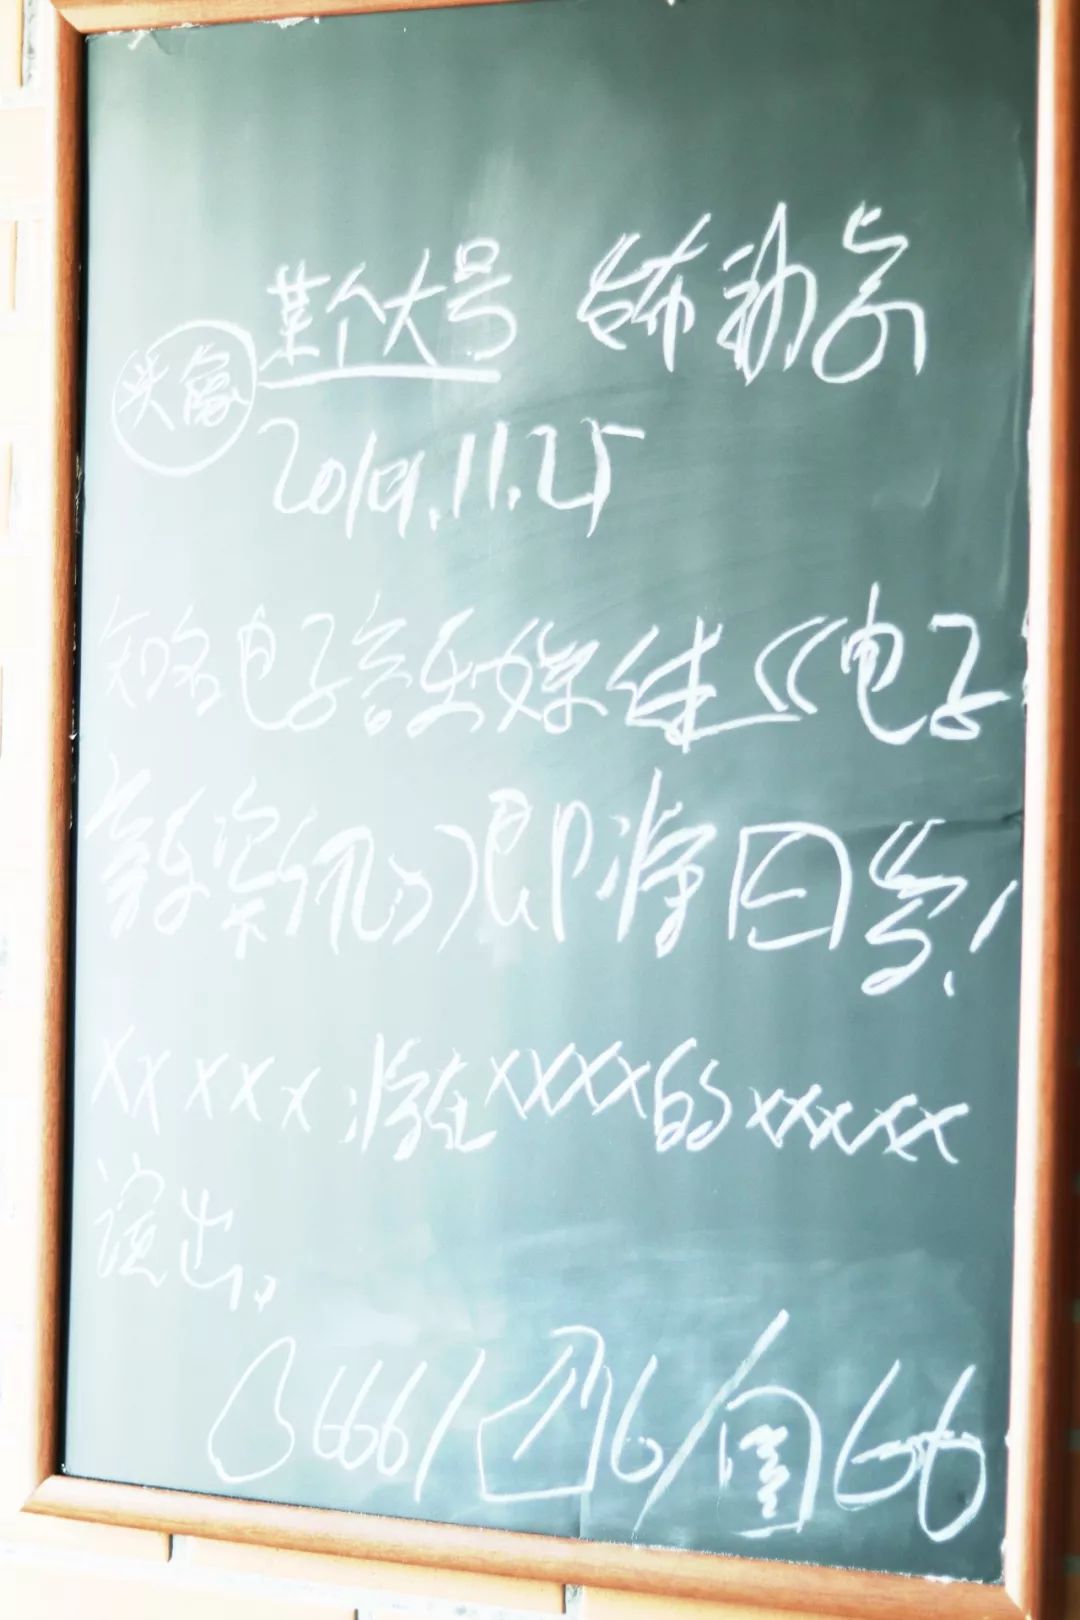 某个大号 发布动态
头像
2019.11.25
知名电子音乐媒体《电子
音乐资讯》即将回归!
xxxxx将在xxxxx的xxxxx
演出。
666/ 6/ 66